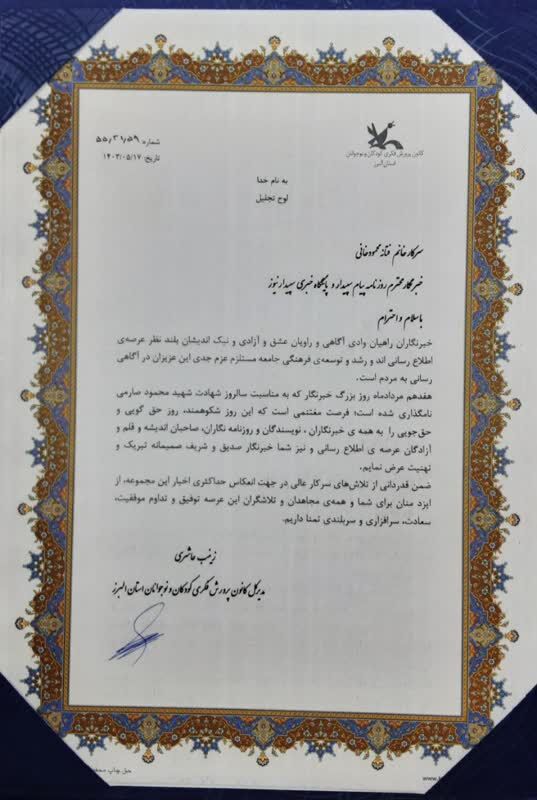 کانون پرورش فکری کودکان و نوجوانان
استان البرز
شماره: ۵۵/۳۱/۵۹
تاریخ: ۱۴۰۲/۰۵/۱۷
به نام خدا
لوح تجلیل
سرکار خانم فتانه محمودخانی
خبرنگار محترم روزنامه پیام سپیدار و پایگاه خبری سپیدار نیوز
با سلام و احترام
خبرنگاران راهیان وادی آگاهی و راویان عشق و آزادی و نیک اندیشان بلند نظر عرصه‌ی
اطلاع رسانی اند و رشد و توسعه‌ی فرهنگی جامعه مستلزم عزم جدی این عزیزان در آگاهی
رسانی به مردم است.
هفدهم مردادماه روز بزرگ خبرنگار که به مناسبت سالروز شهادت شهید محمود صارمی
نامگذاری شده است؛ فرصت مغتنمی است که این روز شکوهمند، روز حق گویی و
حق‌جویی را به همه ی خبرنگاران ، نویسندگان و روزنامه نگاران، صاحبان اندیشه و قلم و
آزادگان عرصه ی اطلاع رسانی و نیز شما خبرنگار صدیق و شریف صمیمانه تبریک و
تهنیت عرض نمایم.
ضمن قدردانی از تلاش‌های سرکار عالی در جهت انعکاس حداکثری اخبار این مجموعه، از
ایزد منان برای شما و همه‌ی مجاهدان و تلاشگران این عرصه توفیق و تداوم موفقیت،
سعادت، سرافرازی و سربلندی تمنا داریم.
زینب عاشری
مدیرکل کانون پرورش فکری کودکان و نوجوانان استان البرز
حق چاپ
www.